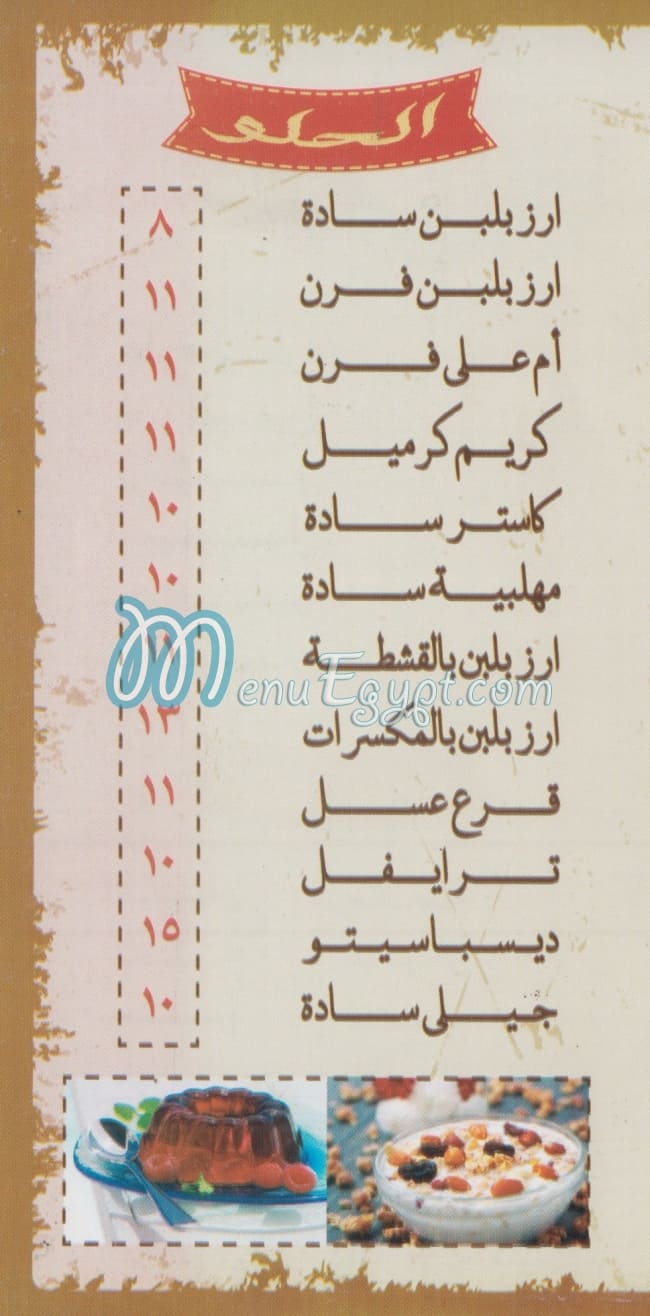 الحلو
ارز بلبن سادة ٨
ارز بلبن فرن ١١
أم على فرن ١١
كريم كرميل ١١
كاستر سادة ١٠
مهلبية سادة ١٠
ارز بلبن بالقشطة
MenuEgypt.com
ارز بلبن بالمكسرات ١٣
قرع عسل ١١
ترايفل ١٠
ديسباسيتو ١٥
جيلى سادة ١٠